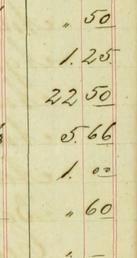 " 50
1. 25
22 50
5. 66
1. 00
" 60